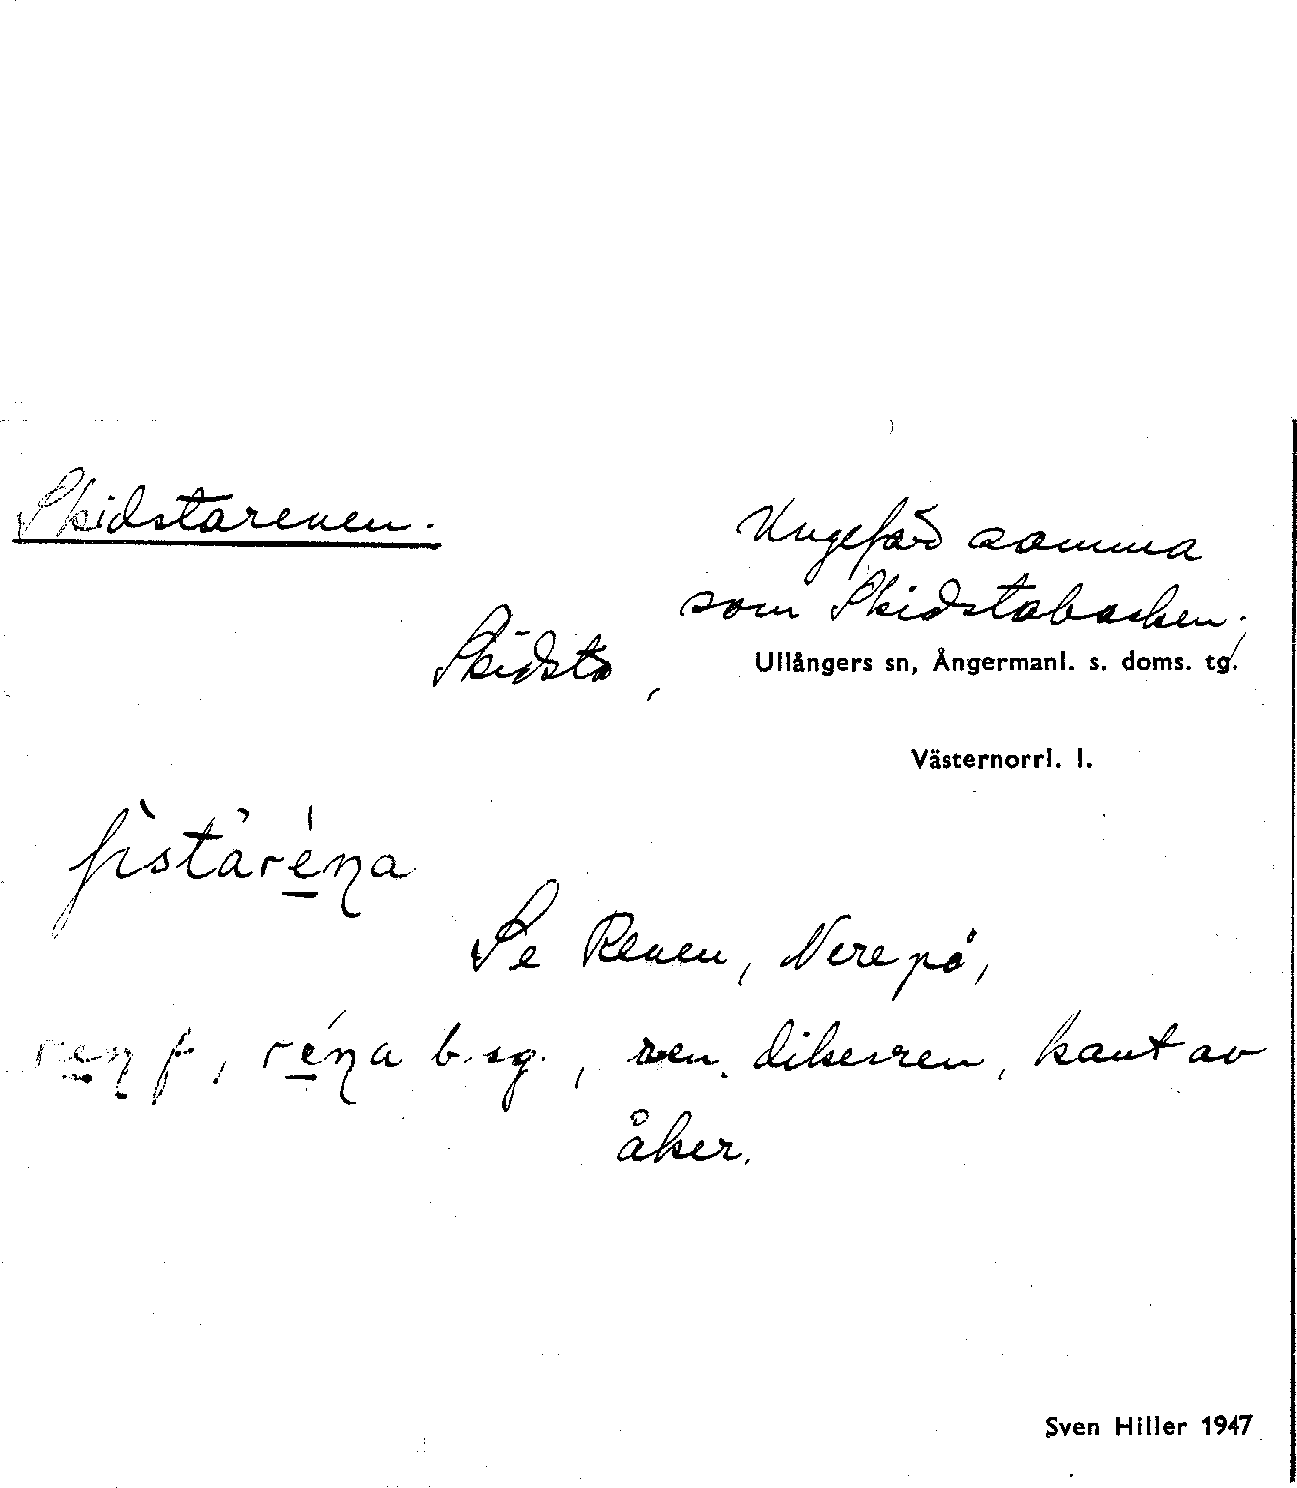 Skidstarenen.
Ungefär samma
som Skidstabacken;
Skidsta,
Ullångers sn, Ångermanl. s. doms. tg.
Västernorrl. l.
Se Renen, Nerepå,
f, b. sg., ren, dikesren, kant av
åker.
Sven Hiller 1947